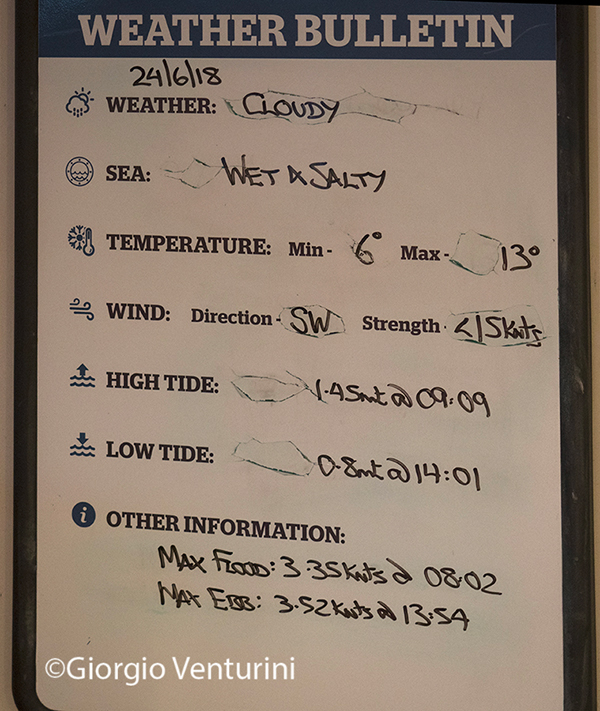 WEATHER BULLETIN
24/6/18
WEATHER: CLOUDY
SEA: WET & SALTY
TEMPERATURE: Min - 6° Max - 13°
WIND: Direction - SW Strength - <15knts
HIGH TIDE: 1.45mt @ 09:09
LOW TIDE: 0.8mt @ 14:01
i OTHER INFORMATION:
MAX FLOOD: 3.35knts @ 08:02
MAX EBB: 3.52knts @ 13:54
©Giorgio Venturini